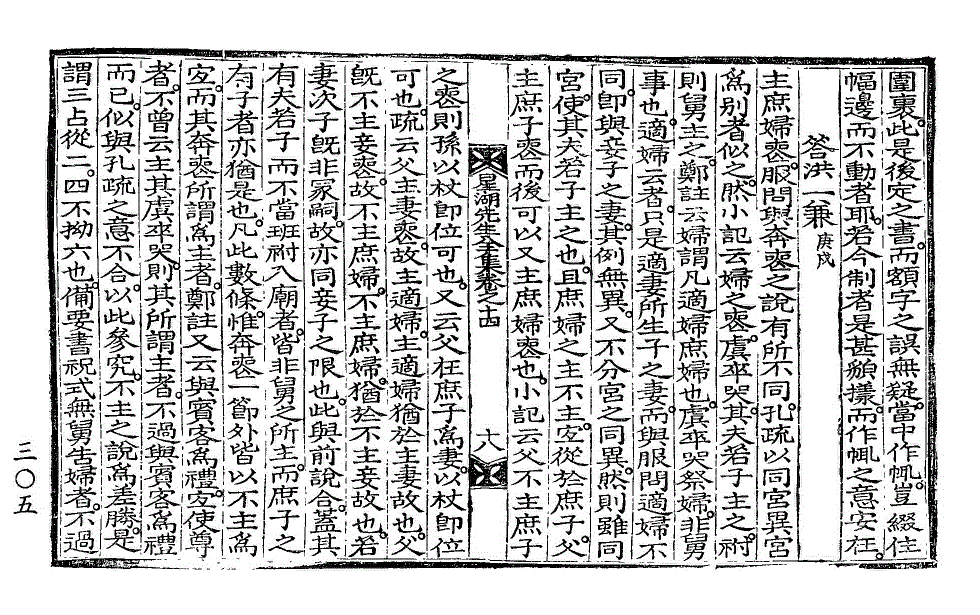 圍裹。此是後定之書。而額字之誤無疑。當中作㡇。豈綴住
幅邊而不動者耶。若今制者是甚貌㨾。而作㡇之意安在。
答洪一兼 庚戌
主庶婦喪。服問與奔喪之說有所不同。孔疏以同宮異宮
爲別者似之。然小記云婦之喪。虞卒哭。其夫若子主之。祔
則舅主之。鄭註云婦謂凡適婦庶婦也。虞卒哭祭婦。非舅
事也。適婦云者。只是適妻所生子之妻。而與服問適婦不
同。卽與妾子之妻。其例無異。又不分宮之同異。然則雖同
宮。使其夫若子主之也。且庶婦之主不主。宜從於庶子。父
主庶子喪而後可以又主庶婦喪也。小記云父不主庶子
星湖先生全集卷之十四
十八
之喪則孫以杖卽位可也。又云父在庶子爲妻。以杖卽位
可也。疏云父主妻喪。故主適婦。主適婦猶於主妻故也。父
旣不主妾喪。故不主庶婦。不主庶婦。猶於不主妾故也。若
妻次子旣非冢嗣。故亦同妾子之限也。此與前說合。蓋其
有夫若子而不當班祔入廟者。皆非舅之所主。而庶子之
有子者亦猶是也。凡此數條。惟奔喪一節外皆以不主爲
宜。而其奔喪所謂爲主者。鄭註又云與賓客爲禮。宜使尊
者。不曾云主其虞卒哭。則其所謂主者。不過與賓客爲禮
而已。似與孔疏之意不合。以此參究。不主之說爲差勝。是
謂三占從二。四不拗六也。備要書祝式無舅告婦者。不過
三〇五